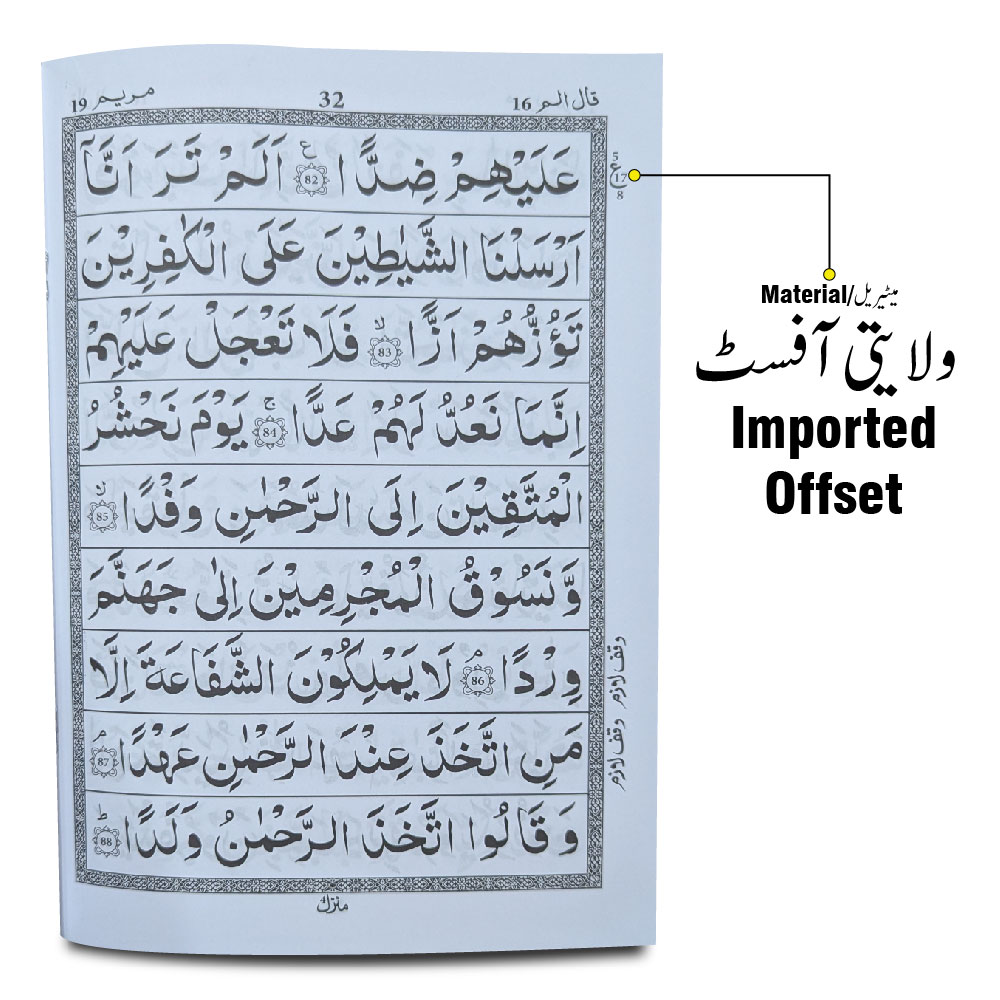 قال الم 16
32
مريم 19
عَلَيْهِمْ ضِدًّا ۝82 ع اَلَمْ تَرَ اَنَّاۤ
اَرْسَلْنَا الشَّيٰطِيْنَ عَلَى الْكٰفِرِيْنَ
تَؤُزُّهُمْ اَزًّا ۝83 لا فَلَا تَعْجَلْ عَلَيْهِمْ
اِنَّمَا نَعُدُّ لَهُمْ عَدًّا ۝84 ج يَوْمَ نَحْشُرُ
الْمُتَّقِيْنَ اِلَى الرَّحْمٰنِ وَفْدًا ۝85 لا
وَّنَسُوْقُ الْمُجْرِمِيْنَ اِلٰى جَهَنَّمَ
وِرْدًا ۝86 م لَا يَمْلِكُوْنَ الشَّفَاعَةَ اِلَّا
مَنِ اتَّخَذَ عِنْدَ الرَّحْمٰنِ عَهْدًا ۝87 م
وَقَالُوا اتَّخَذَ الرَّحْمٰنُ وَلَدًا ۝88 ط
منزل ٤
5
ع
17
8
وقف لازم
وقف لازم
Material/میٹیریل
ولایتی آفسٹ
Imported
Offset